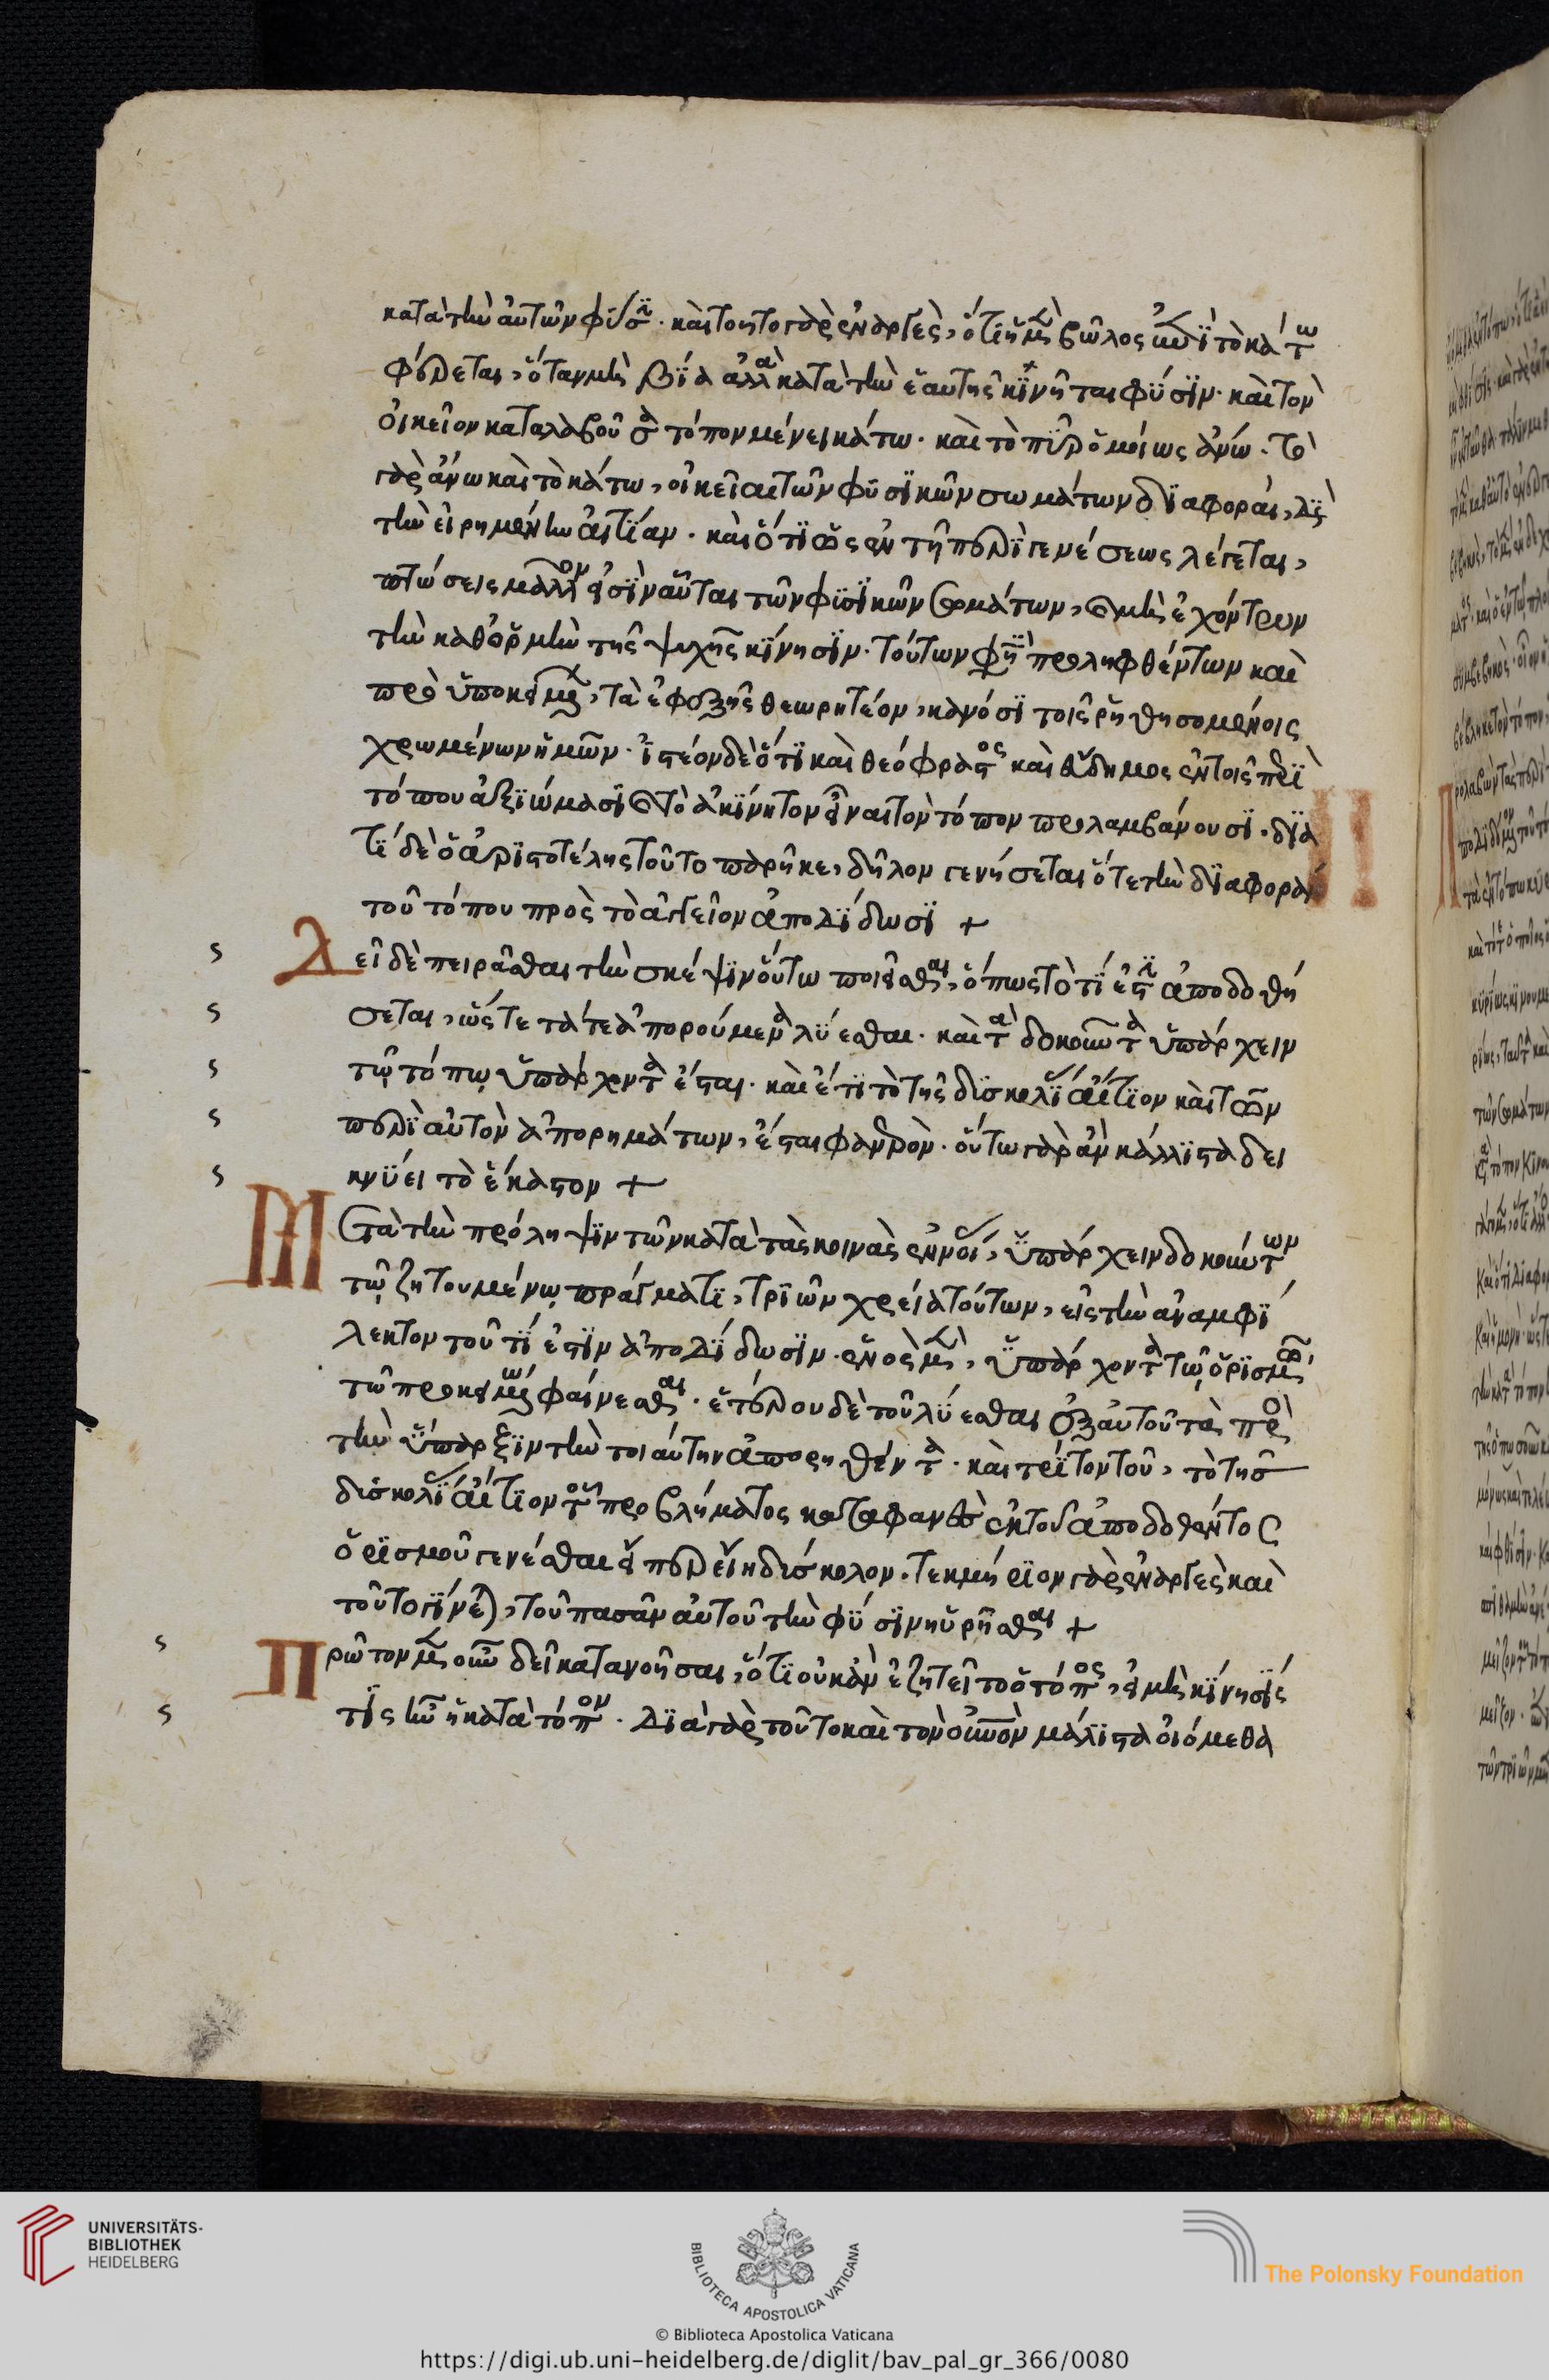 κατὰ τὴν αὐτῶν φύσιν. καὶ τοῦτο γὰρ ἐναργὲς, ὅτι ἡ μὲν βῶλος ἐπὶ τὸ κάτω
φέρεται, ὅταν μὴ βίᾳ ἀλλὰ κατὰ τὴν ἑαυτῆς κινῆται φύσιν. καὶ τὸν
οἰκεῖον καταλαβοῦσα τόπον μένει κάτω. καὶ τὸ πῦρ ὁμοίως ἄνω. τὸ
γὰρ ἄνω καὶ τὸ κάτω, οἰκεῖαι τῶν φυσικῶν σωμάτων διαφοραὶ, διὰ
τὴν εἰρημένην αἰτίαν. καὶ ὅτι ὡς ἐν τῇ περὶ γενέσεως λέγεται,
πτώσεις μᾶλλον εἰσὶν αὗται τῶν φυσικῶν σωμάτων, μὴ ἐχόντων
τὴν καθ' ὁρμὴν τῆς ψυχῆς κίνησιν. τούτων φησὶ προληφθέντων καὶ
προϋποκειμένων, τὰ ἐφεξῆς θεωρητέον, κανόσι τοῖς ῥηθησομένοις
χρωμένων ἡμῶν. ἰστέον δὲ ὅτι καὶ θεόφραστος καὶ εὔδημος ἐν τοῖς περὶ
τόπου ἀξιώμασι τὸ ἀκίνητον εἶναι τὸν τόπον προλαμβάνουσι. διὰ
τί δὲ ὁ ἀριστοτέλης τοῦτο παρῆκε, δῆλον γενήσεται ὅτε τὴν διαφορὰν
τοῦ τόπου πρὸς τὸ ἀγγεῖον ἀποδίδωσι +
Δεῖ δὲ πειρᾶσθαι τὴν σκέψιν οὕτω ποιεῖσθαι, ὅπως τὸ τί ἐστιν ἀποδοθή
σεται, ὥστε τά τε ἀπορούμενα λύεσθαι. καὶ τὰ δοκοῦντα ὑπάρχειν
τῷ τόπῳ ὑπάρχοντα ἔσται. καὶ ἔτι τὸ τῆς δυσκολίας αἴτιον καὶ τῶν
περὶ αὐτὸν ἀπορημάτων, ἔσται φανερὸν. οὕτω γὰρ ἂν κάλλιστα δει
κνύει τὸ ἕκαστον +
Μετὰ τὴν πρόληψιν τῶν κατὰ τὰς κοινὰς ἐννοίας, ὑπάρχειν δοκούντων
τῷ ζητουμένῳ πράγματι, τριῶν χρεία τούτων, εἰς τὴν ἀναμφί
λεκτον τοῦ τί ἐστιν ἀπόδοσιν. ἑνὸς μὲν, ὑπάρχοντα τῷ ὁρισμῷ
τῶν προκειμένων φαίνεσθαι. ἑτέρου δὲ τοῦ λύεσθαι ἐξ αὐτοῦ τὰ πρὸς
τὴν ὕπαρξιν τὴν τοιαύτην ἀπορηθέντα. καὶ τρίτον τοῦ, τὸ τῆς
δυσκολίας αἴτιον τοῦ προβλήματος καταφανὲς ἐκ τοῦ ἀποδοθέντος
ὁρισμοῦ γενέσθαι εἴπερ εἴη δύσκολον. τεκμήριον γὰρ ἐναργὲς καὶ
τοῦτο γίνεται, τοῦ πᾶσαν αὐτοῦ τὴν φύσιν ηὑρῆσθαι +
Πρῶτον μὲν οὖν δεῖ κατανοῆσαι, ὅτι οὐκ ἂν ἐζητεῖτο ὁ τόπος, εἰ μὴ κίνησίς
τις ἦν ἡ κατὰ τόπον. διὰ γὰρ τοῦτο καὶ τὸν οὐρανὸν μάλιστα οἰόμεθα
UNIVERSITÄTS-
BIBLIOTHEK
HEIDELBERG
BIBLIOTECA APOSTOLICA VATICANA
The Polonsky Foundation
© Biblioteca Apostolica Vaticana
https://digi.ub.uni-heidelberg.de/diglit/bav_pal_gr_366/0080